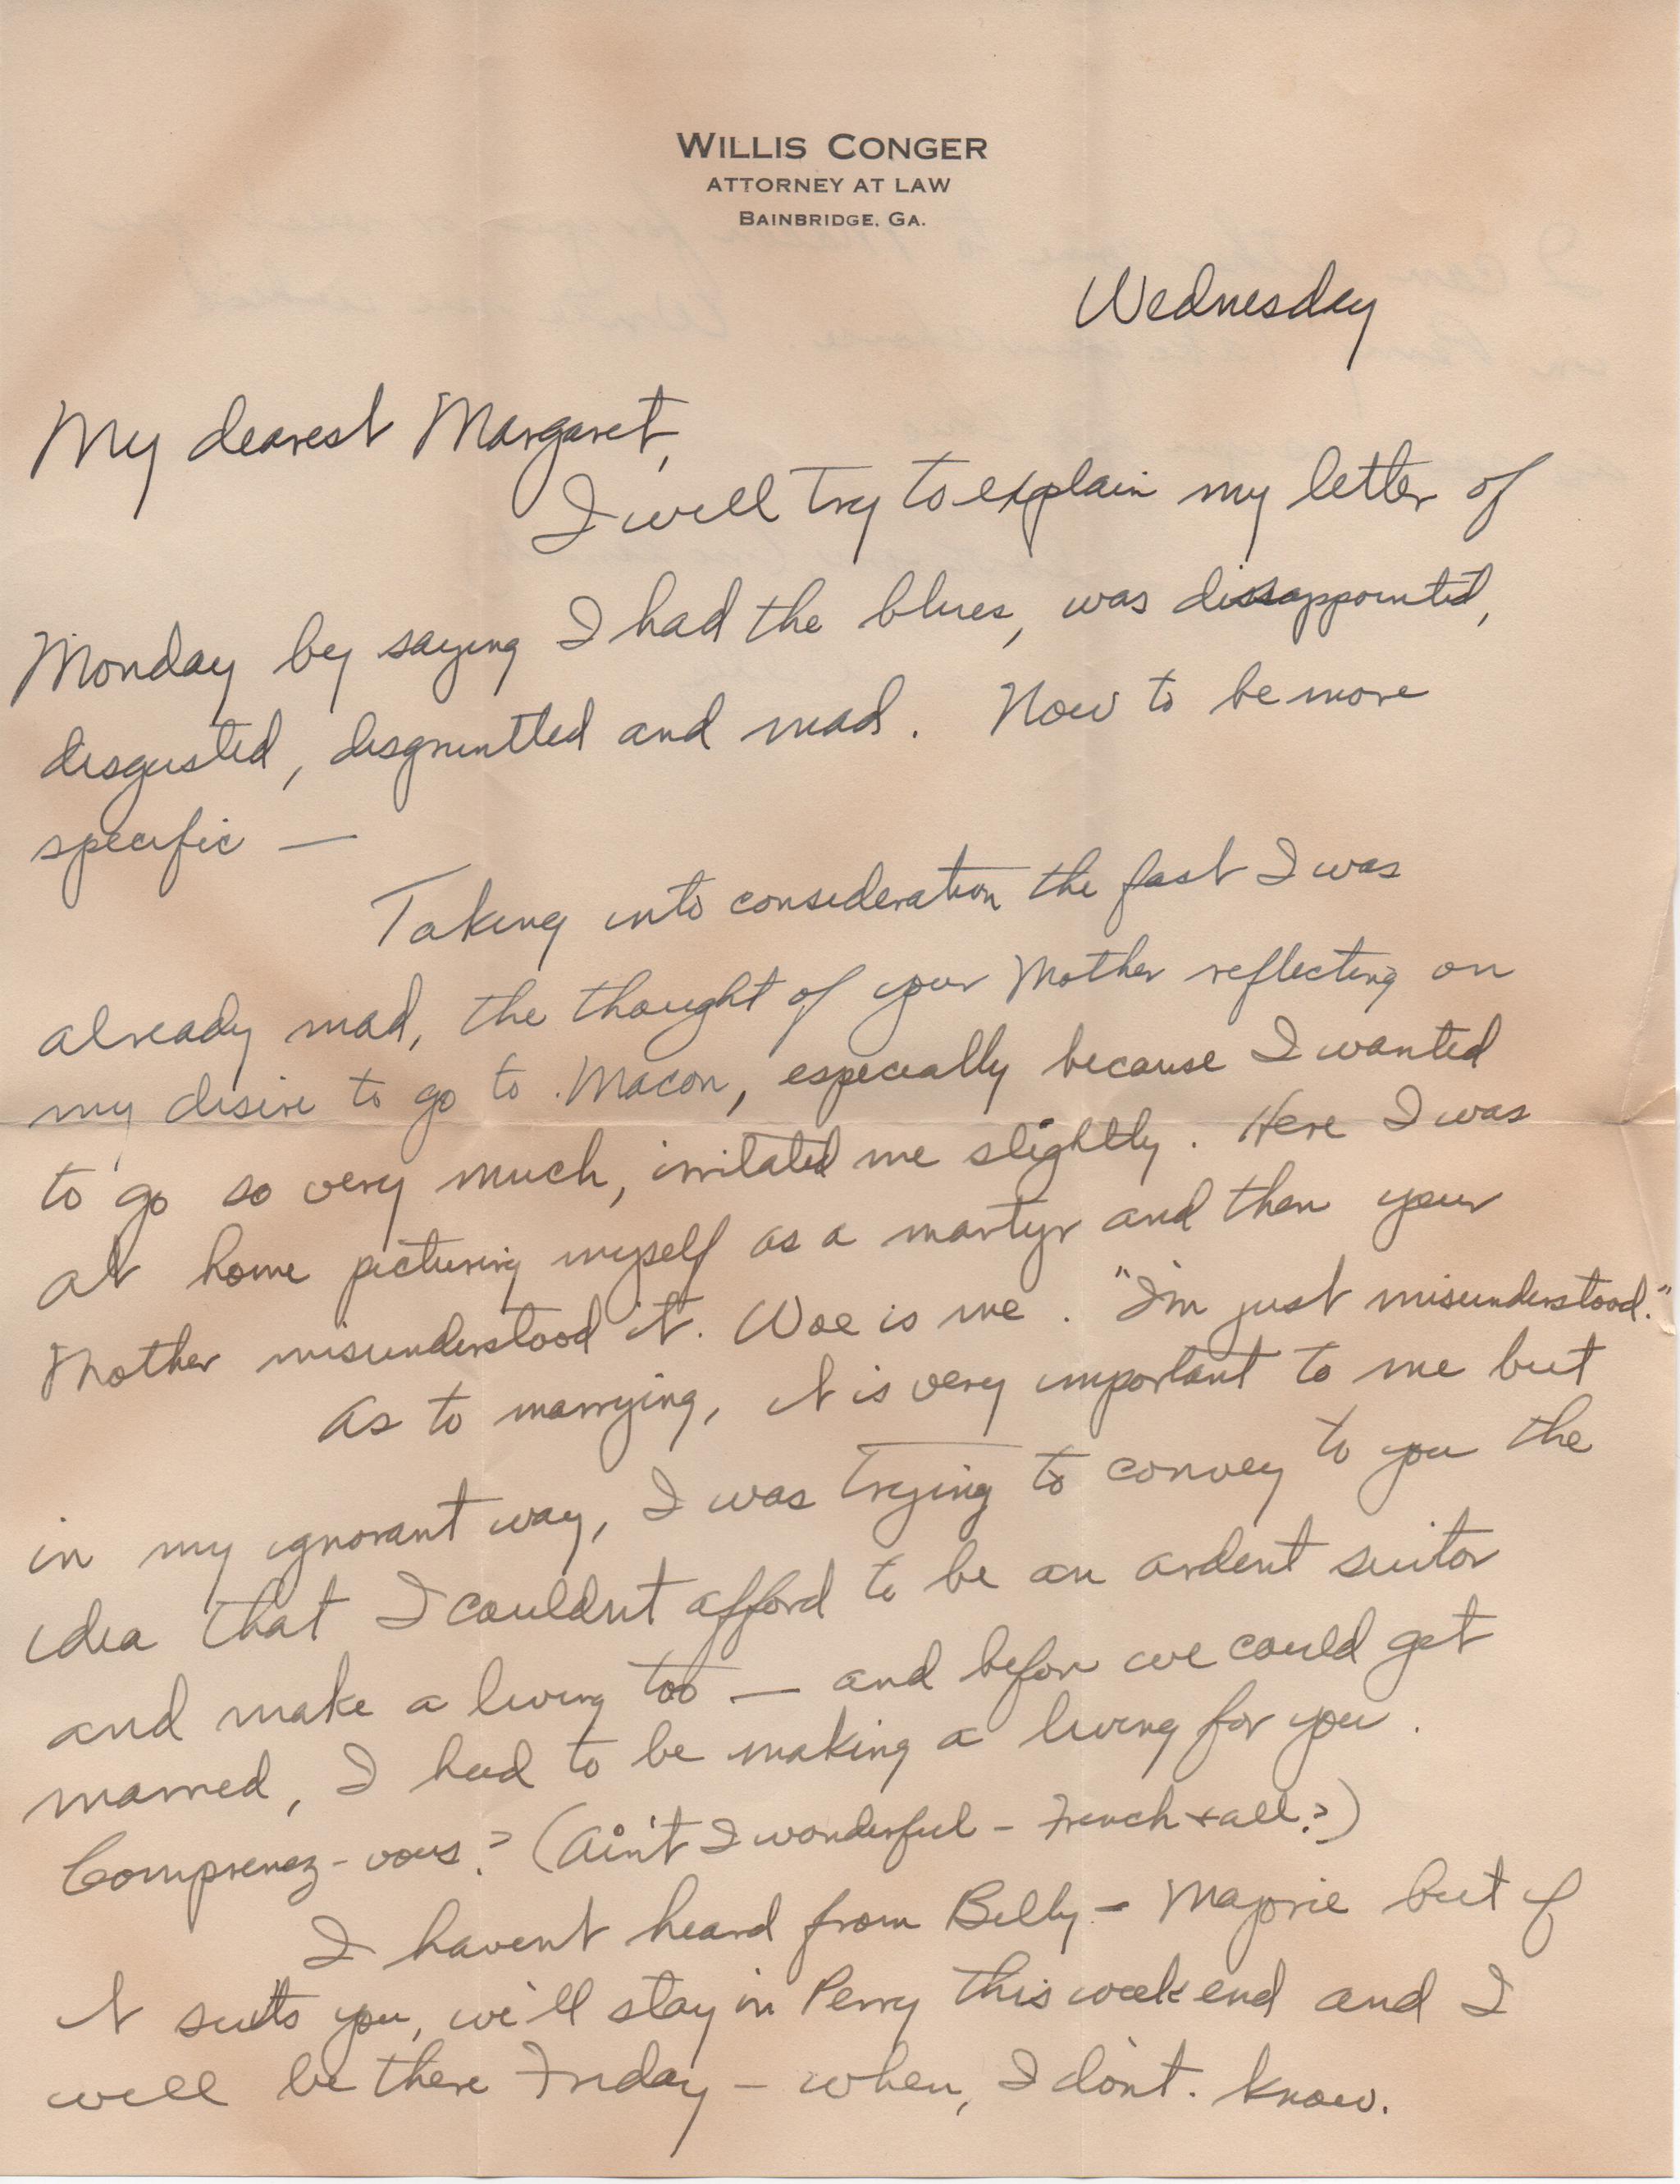 WILLIS CONGER
ATTORNEY AT LAW
BAINBRIDGE, GA.
Wednesday
My dearest Margaret,
I will try to explain my letter of
Monday by saying I had the blues, was dissappointed,
disgusted, disgruntled and mad. Now to be more
specific —
Taking into consideration the fact I was
already mad, the thought of your Mother reflecting on
my desire to go to Macon, especially because I wanted
to go so very much, irritated me slightly. Here I was
at home picturing myself as a martyr and then your
Mother misunderstood it. Woe is me. "I'm just misunderstood."
As to marrying, it is very important to me but
in my ignorant way, I was trying to convey to you the
idea that I couldn't afford to be an ardent suitor
and make a living too — and before we could get
married, I had to be making a living for you.
Comprenez-vous? (Ain't I wonderful - French + all?)
I haven't heard from Billy - Marjorie but if
it suits you, we'll stay in Perry this week end and I
will be there Friday - when, I don't know.